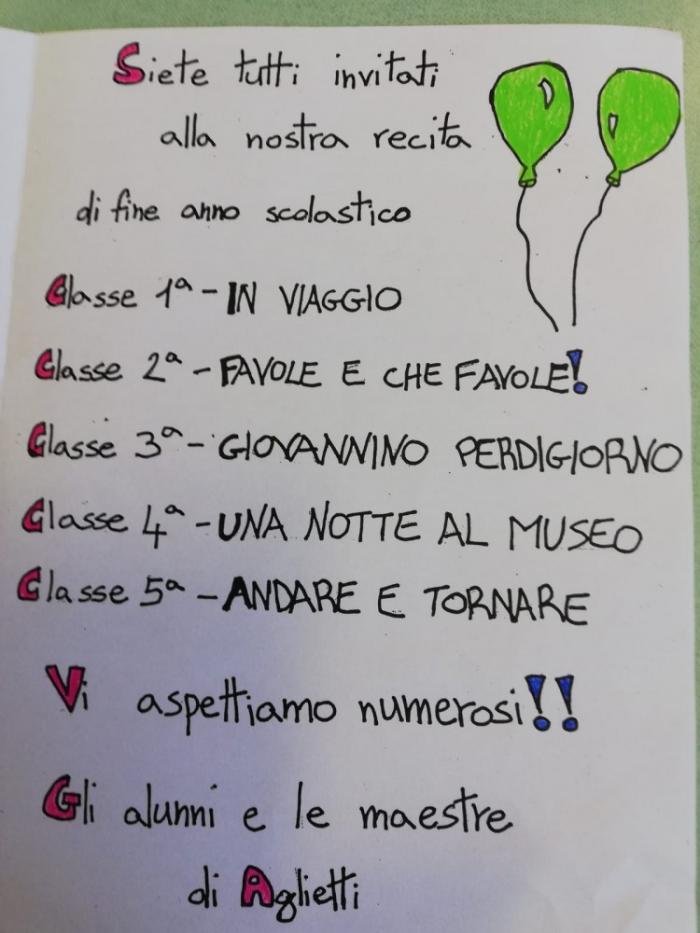 Siete tutti invitati
alla nostra recita
di fine anno scolastico
Classe 1ª - IN VIAGGIO
Classe 2ª - FAVOLE E CHE FAVOLE!
Classe 3ª - GIOVANNINO PERDIGIORNO
Classe 4ª - UNA NOTTE AL MUSEO
Classe 5ª - ANDARE E TORNARE
Vi aspettiamo numerosi!!
Gli alunni e le maestre
di Aglietti